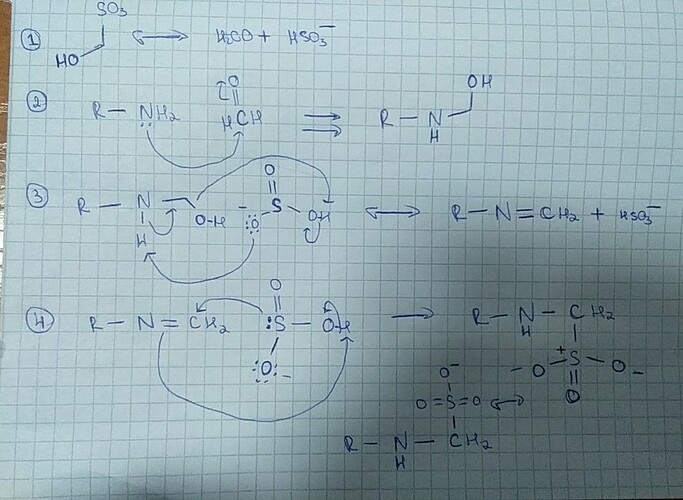 SO3
① HO ⟷ H2CO + HSO3⁻
② R – NH2 O HCH ⇉ R – N H OH
③ R – N H O-H ⁻O S O OH ⟷ R – N = CH2 + HSO3⁻
④ R – N = CH2 O :S – OH :O: – ⟶ R – N H – CH2
+ S – O – O – O
O⁻
O=S=O ⟷
R – N H – CH2